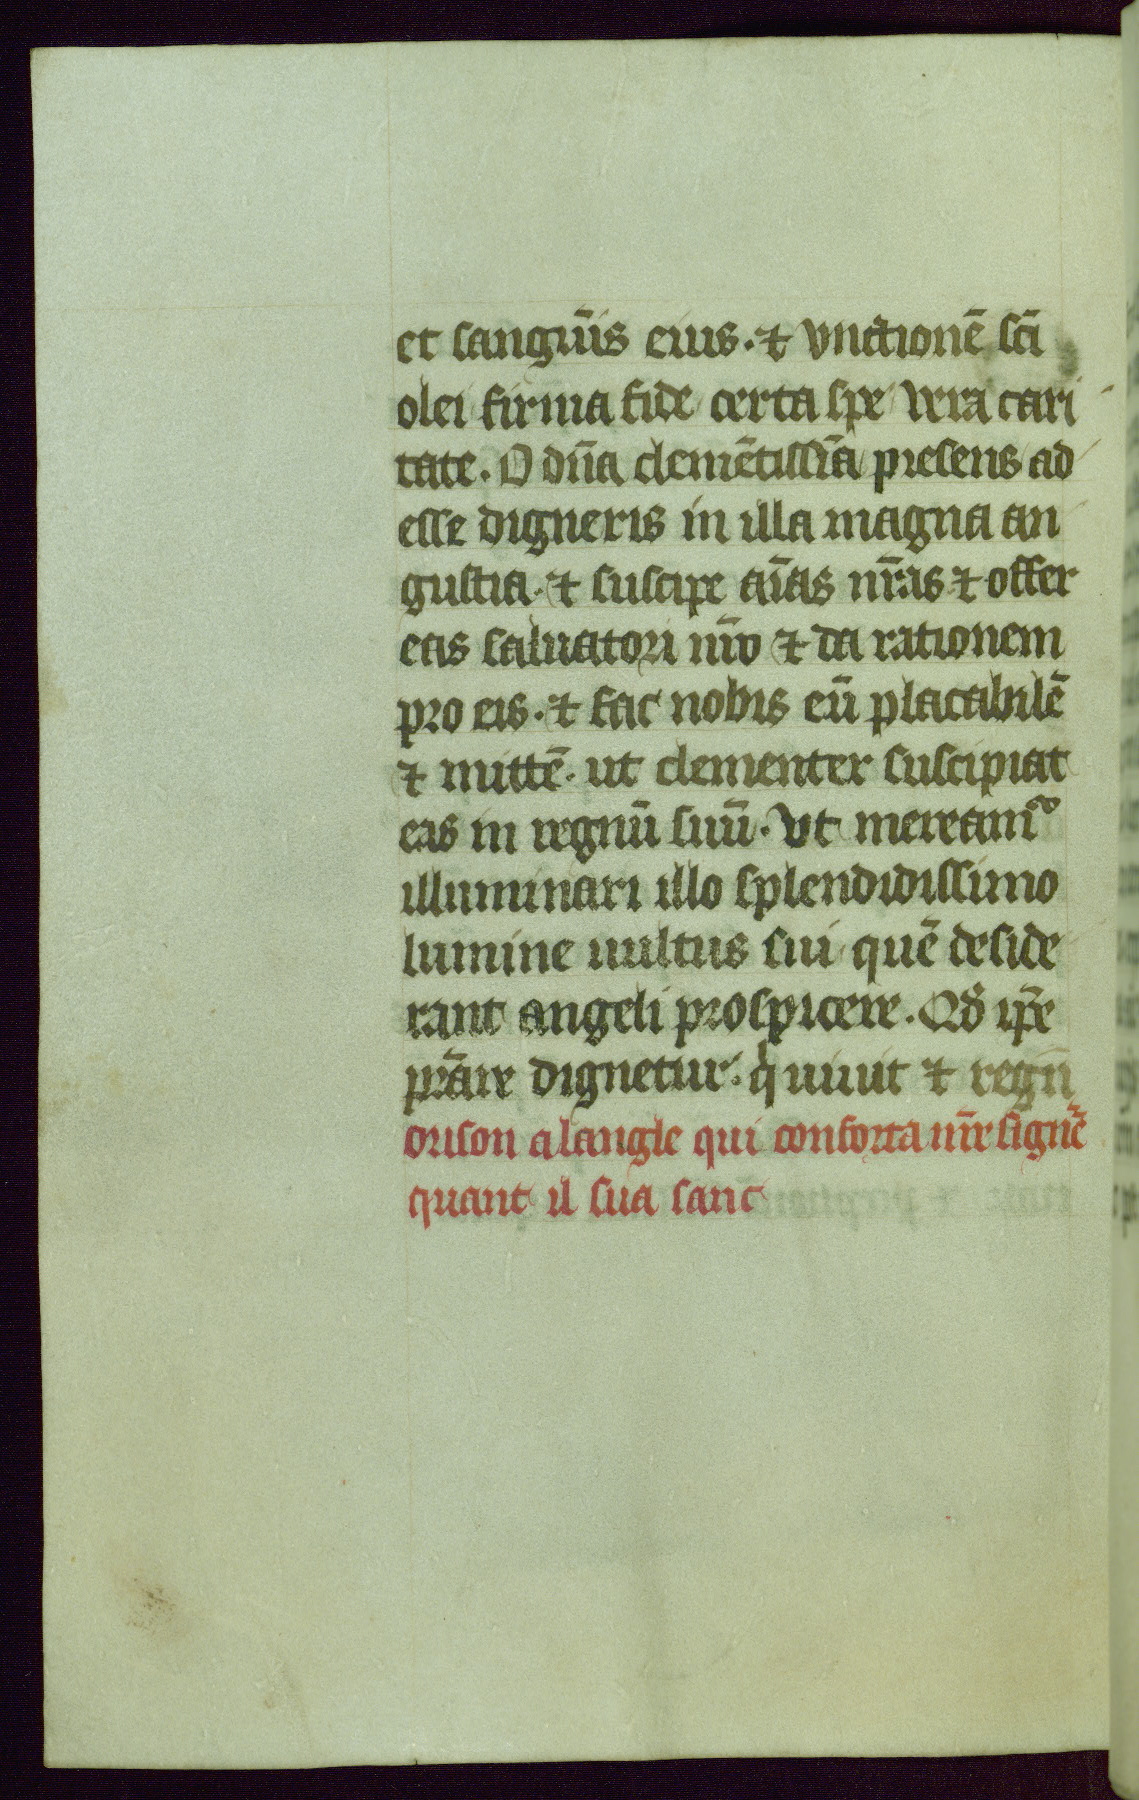 et sanguīs eius. ⁊ vnctionē scī
olei firma fide certa spe vera cari
tate. O dn̄a clemētissīa presens ad
esse digneris in illa magna an
gustia. ⁊ suscipe aīas nr̄as ⁊ offer
eas saluatori nr̄o ⁊ da rationem
pro eis. ⁊ fac nobis eū placabilē
⁊ mittē. ut clementer suscipiat
eas in regnū suū. Vt mereamꝰ
illuminari illo splendidissimo
lumine uultus sui quē deside
rant angeli prospicere. Qd̄ ip̄e
p̄rare dignetur. qͥ uiuit ⁊ regn̄
orison a langle qui conforta nr̄e signē
quant il sua sanc